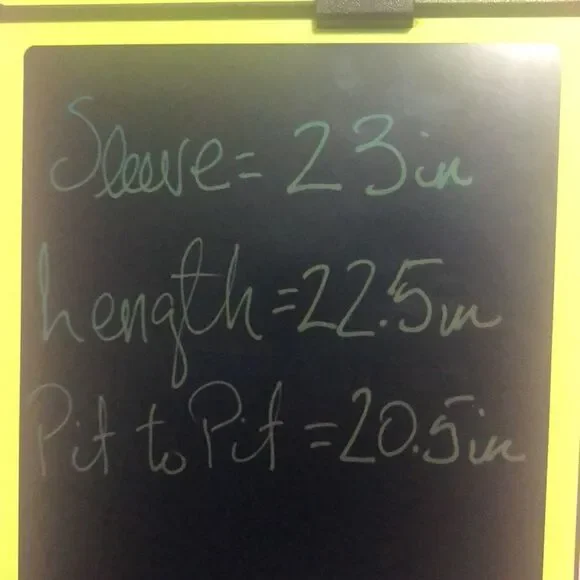 Sleeve = 23in
Length = 22.5in
Pit to Pit = 20.5in